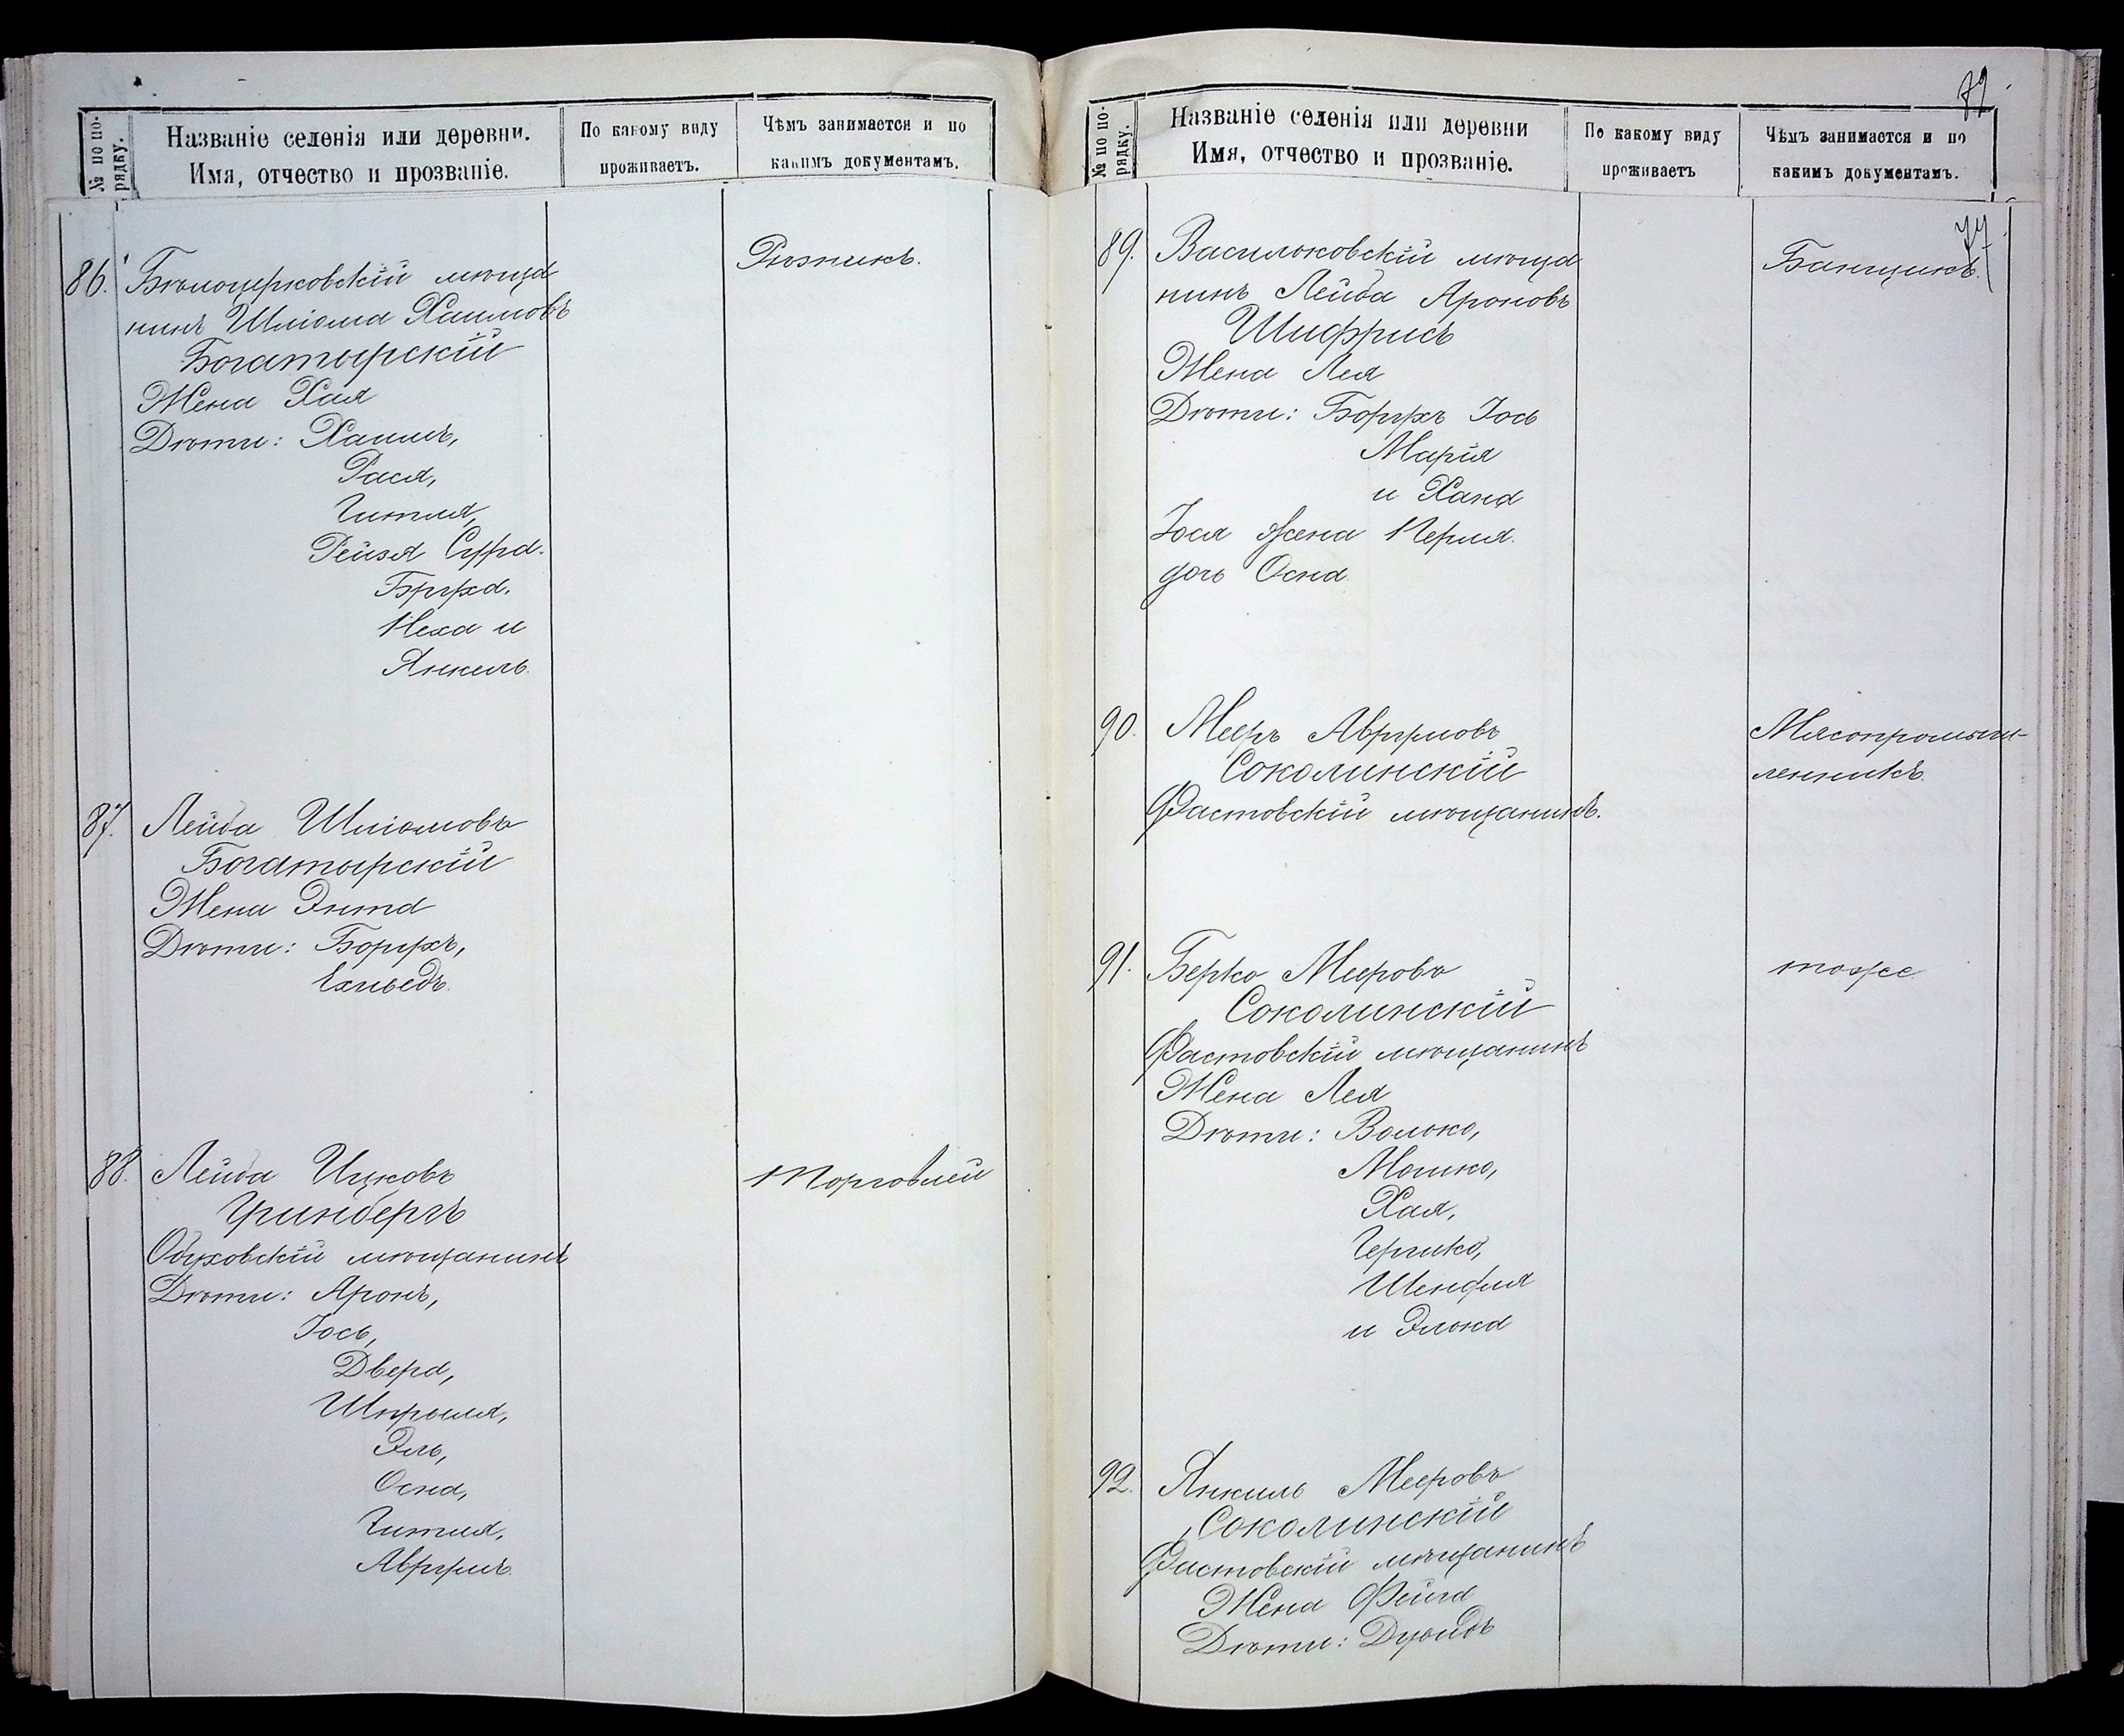 № по по-
рядку.
Названіе селенія или деревни.
Имя, отчество и прозваніе.
По какому виду
проживаетъ.
Чѣмъ занимается и по
какимъ документамъ.
86. Бѣлоцерковскій мѣща
нинъ Шліома Хаимовъ
Богатырскій
Рѣзникъ.
Жена Хая
Дѣти: Хаимъ,
Рася,
Гитля,
Рейзя Сура.
Бруха.
Неха и
Янкель.
87. Лейба Шліомовъ
Богатырскій
Жена Энта
Дѣти: Борухъ,
Ехиведъ.
88. Лейба Ицковъ
Гринбергъ
Торговлей
Обуховскій мѣщанинъ
Дѣти: Аронъ,
Іось,
Двера,
Шпрыця,
Эль,
Осна,
Гитля,
Аврумъ.
79.
77.
№ по по-
рядку.
Названіе селенія или деревни
Имя, отчество и прозваніе.
По какому виду
проживаетъ
Чѣмъ занимается и по
какимъ документамъ.
89. Васильковскій мѣща
нинъ Лейба Ароновъ
Шифрисъ
Банщикъ.
Жена Лея
Дѣти: Борухъ Іось
Марія
и Хана
Іося жена Перля.
дочь Осна.
90. Мееръ Аврумовъ
Соколинскій
Фастовскій мѣщанинъ.
Мясопромыш-
ленникъ.
91. Берко Мееровъ
Соколинскій
тоже
Фастовскій мѣщанинъ
Жена Лея
Дѣти: Волько,
Мошко,
Хая,
Гершко,
Шендля
и Элька
92. Янкель Мееровъ
Соколинскій
Фастовскій мѣщанинъ
Жена Фейга
Дѣти: Дувидъ